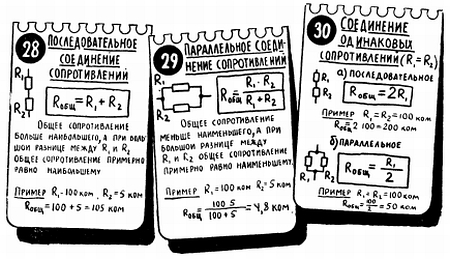 28
ПОСЛЕДОВАТЕЛЬНОЕ
СОЕДИНЕНИЕ
СОПРОТИВЛЕНИЙ
R₁
R₂
Rобщ = R₁ + R₂
ОБЩЕЕ СОПРОТИВЛЕНИЕ
БОЛЬШЕ НАИБОЛЬШЕГО, А ПРИ БОЛЬ
ШОЙ РАЗНИЦЕ МЕЖДУ R₁ И R₂
ОБЩЕЕ СОПРОТИВЛЕНИЕ ПРИМЕРНО
РАВНО НАИБОЛЬШЕМУ
ПРИМЕР R₁-100 КОМ, R₂=5 КОМ
RОБЩ=100+5=105 КОМ
29
ПАРАЛЛЕЛЬНОЕ СОЕДИ-
НЕНИЕ СОПРОТИВЛЕНИЙ
R₁
R₂
Rобщ = R₁·R₂ / R₁+R₂
ОБЩЕЕ СОПРОТИВЛЕНИЕ
МЕНЬШЕ НАИМЕНЬШЕГО, А ПРИ
БОЛЬШОЙ РАЗНИЦЕ МЕЖДУ
R₁ И R₂ ОБЩЕЕ СОПРОТИВЛЕНИЕ
ПРИМЕРНО РАВНО НАИМЕНЬШЕМУ.
ПРИМЕР R₁=100 КОМ R₂=5 КОМ
RОБЩ = 100 5 / 100+5 = 4,8 КОМ
30
СОЕДИНЕНИЕ
ОДИНАКОВЫХ
СОПРОТИВЛЕНИЙ (R₁=R₂)
а) ПОСЛЕДОВАТЕЛЬНОЕ
R₁
R₂
Rобщ = 2R₁
ПРИМЕР R₁=R₂=100 КОМ
RОБЩ=2 100=200 КОМ
б) ПАРАЛЛЕЛЬНОЕ
R₁ R₂
Rобщ = R₁ / 2
ПРИМЕР R₁+R₂=100 КОМ
RОБЩ=100/2=50 КОМ